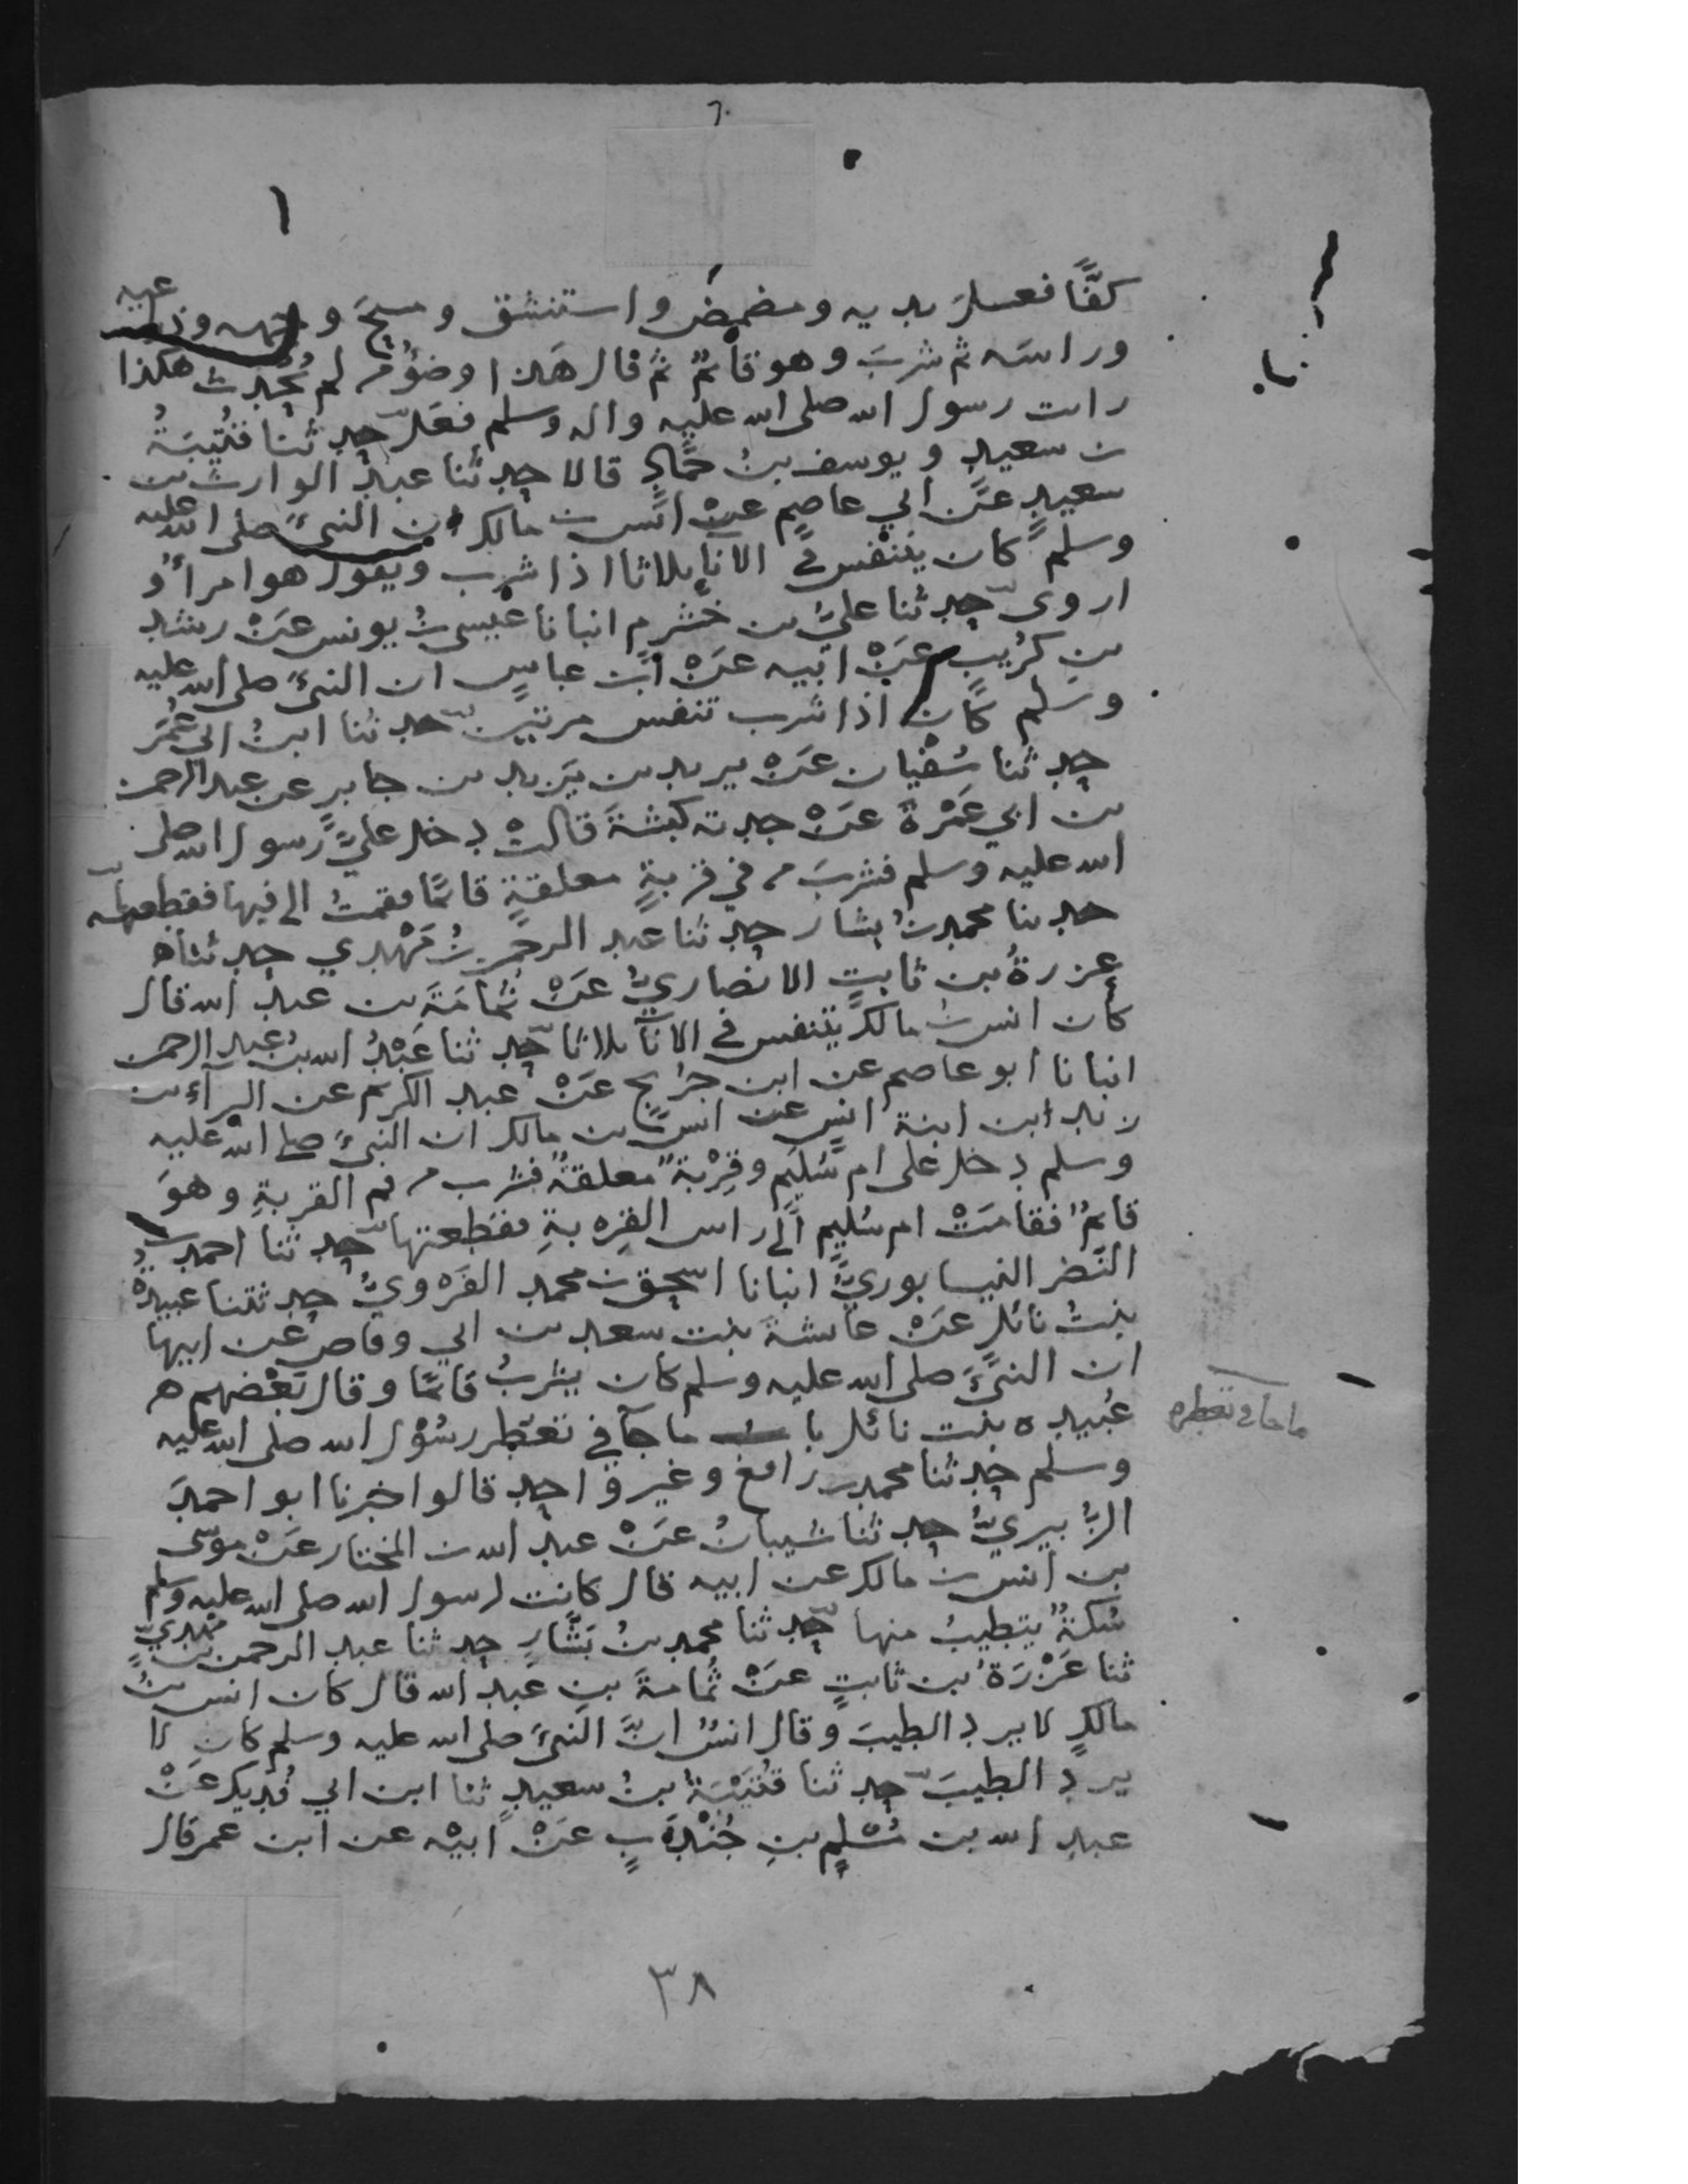 ٦٠
كفًّا فغسل يديه ومضمض واستنشق ومسح وجهه وذراعيه
وراسه ثم شرب وهو قائم ثم قال هذا وضوء من لم يحدث هكذا
رايت رسول الله صلى الله عليه واله وسلم فعل حدثنا قتيبة
بن سعيد ويوسف بن حماد قالا حدثنا عبد الوارث بن
سعيد عن ابي عاصم عن انس بن مالك ان النبي صلى الله عليه
وسلم كان يتنفس في الاناء ثلاثا اذا شرب ويقول هو امرأ و
اروى حدثنا علي بن خشرم انبانا عيسى بن يونس عن رشد
بن كريب عن ابيه عن ابن عباس ان النبي صلى الله عليه
وسلم كان اذا شرب تنفس مرتين حدثنا ابن ابي عمر
حدثنا سفيان عن يزيد بن يزيد بن جابر عن عبد الرحمن
بن ابي عمرة عن جدته كبشة قالت دخل علي رسول الله صلى
الله عليه وسلم فشرب من في قربة معلقة قائما فقمت الى فيها فقطعته
حدثنا محمد بن بشار حدثنا عبد الرحمن بن مهدي حدثنا
عزرة بن ثابت الانصاري عن ثمامة بن عبد الله قال
كان انس بن مالك يتنفس في الاناء ثلاثا حدثنا عبد الله بن عبد الرحمن
انبانا ابو عاصم عن ابن جريج عن عبد الكريم عن البراء بن
زيد ابن ابنة انس عن انس بن مالك ان النبي صلى الله عليه
وسلم دخل على ام سليم وقربة معلقة فشرب من فم القربة وهو
قائم فقامت ام سليم الى راس القربة فقطعتها حدثنا احمد بن
النضر النيسابوري انبانا اسحق بن محمد الفروي حدثتنا عبيدة
بنت نائل عن عائشة بنت سعد بن ابي وقاص عن ابيها
ان النبي صلى الله عليه وسلم كان يشرب قائما وقال بعضهم
عبيده بنت نائل باب ما جاء في تعطر رسول الله صلى الله عليه
ما جا في تعطره
وسلم حدثنا محمد بن رافع وغير واحد قالوا اخبرنا ابو احمد
الزبيري حدثنا شيبان عن عبد الله بن المختار عن موسى
بن انس بن مالك عن ابيه قال كانت لرسول الله صلى الله عليه وسلم
سكة يتطيب منها حدثنا محمد بن بشار حدثنا عبد الرحمن بن مهدي
ثنا عزرة بن ثابت عن ثمامة بن عبد الله قال كان انس بن
مالك لا يرد الطيب وقال انس ان النبي صلى الله عليه وسلم كان لا
يرد الطيب حدثنا قتيبة بن سعيد ثنا ابن ابي فديك عن
عبد الله بن مسلم بن جندب عن ابيه عن ابن عمر قال
٣٨